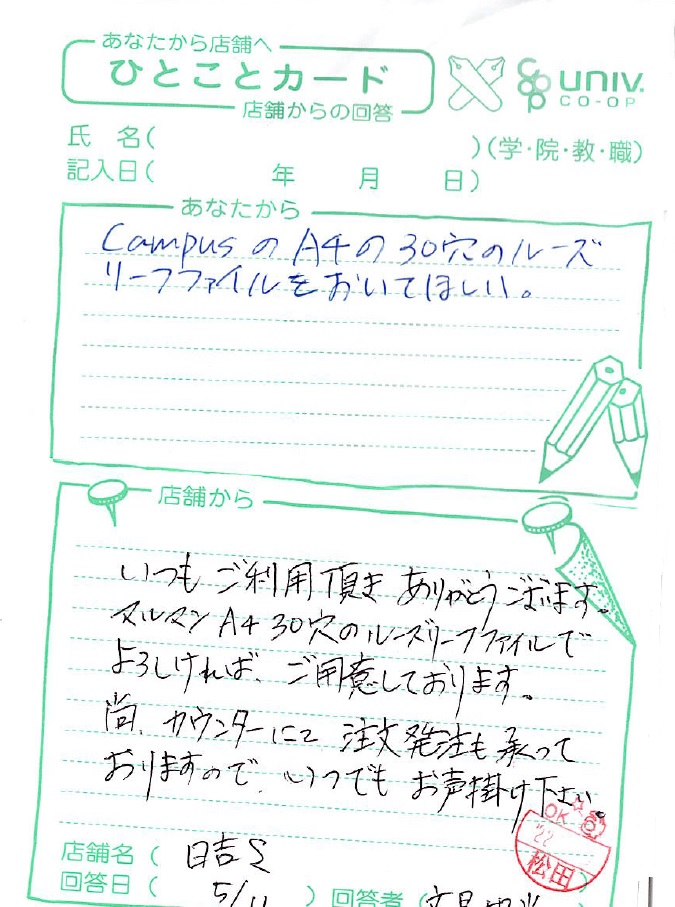 あなたから店舗へ
ひとことカード
店舗からの回答
UNIV.
CO-OP
氏 名( )(学・院・教・職)
記入日( 年 月 日)
あなたから
CampusのA4の30穴のルーズ
リーフファイルをおいてほしい。
店舗から
いつもご利用頂き ありがとうございます。
マルマン A4 30穴のルーズリーフファイルで
よろしければ、ご用意しております。
尚、カウンターにて 注文発注も承って
おりますので、いつでも お声掛け下さい。
OK
'22
松田
店舗名( 日吉
回答日( 5/11 ) 回答者(